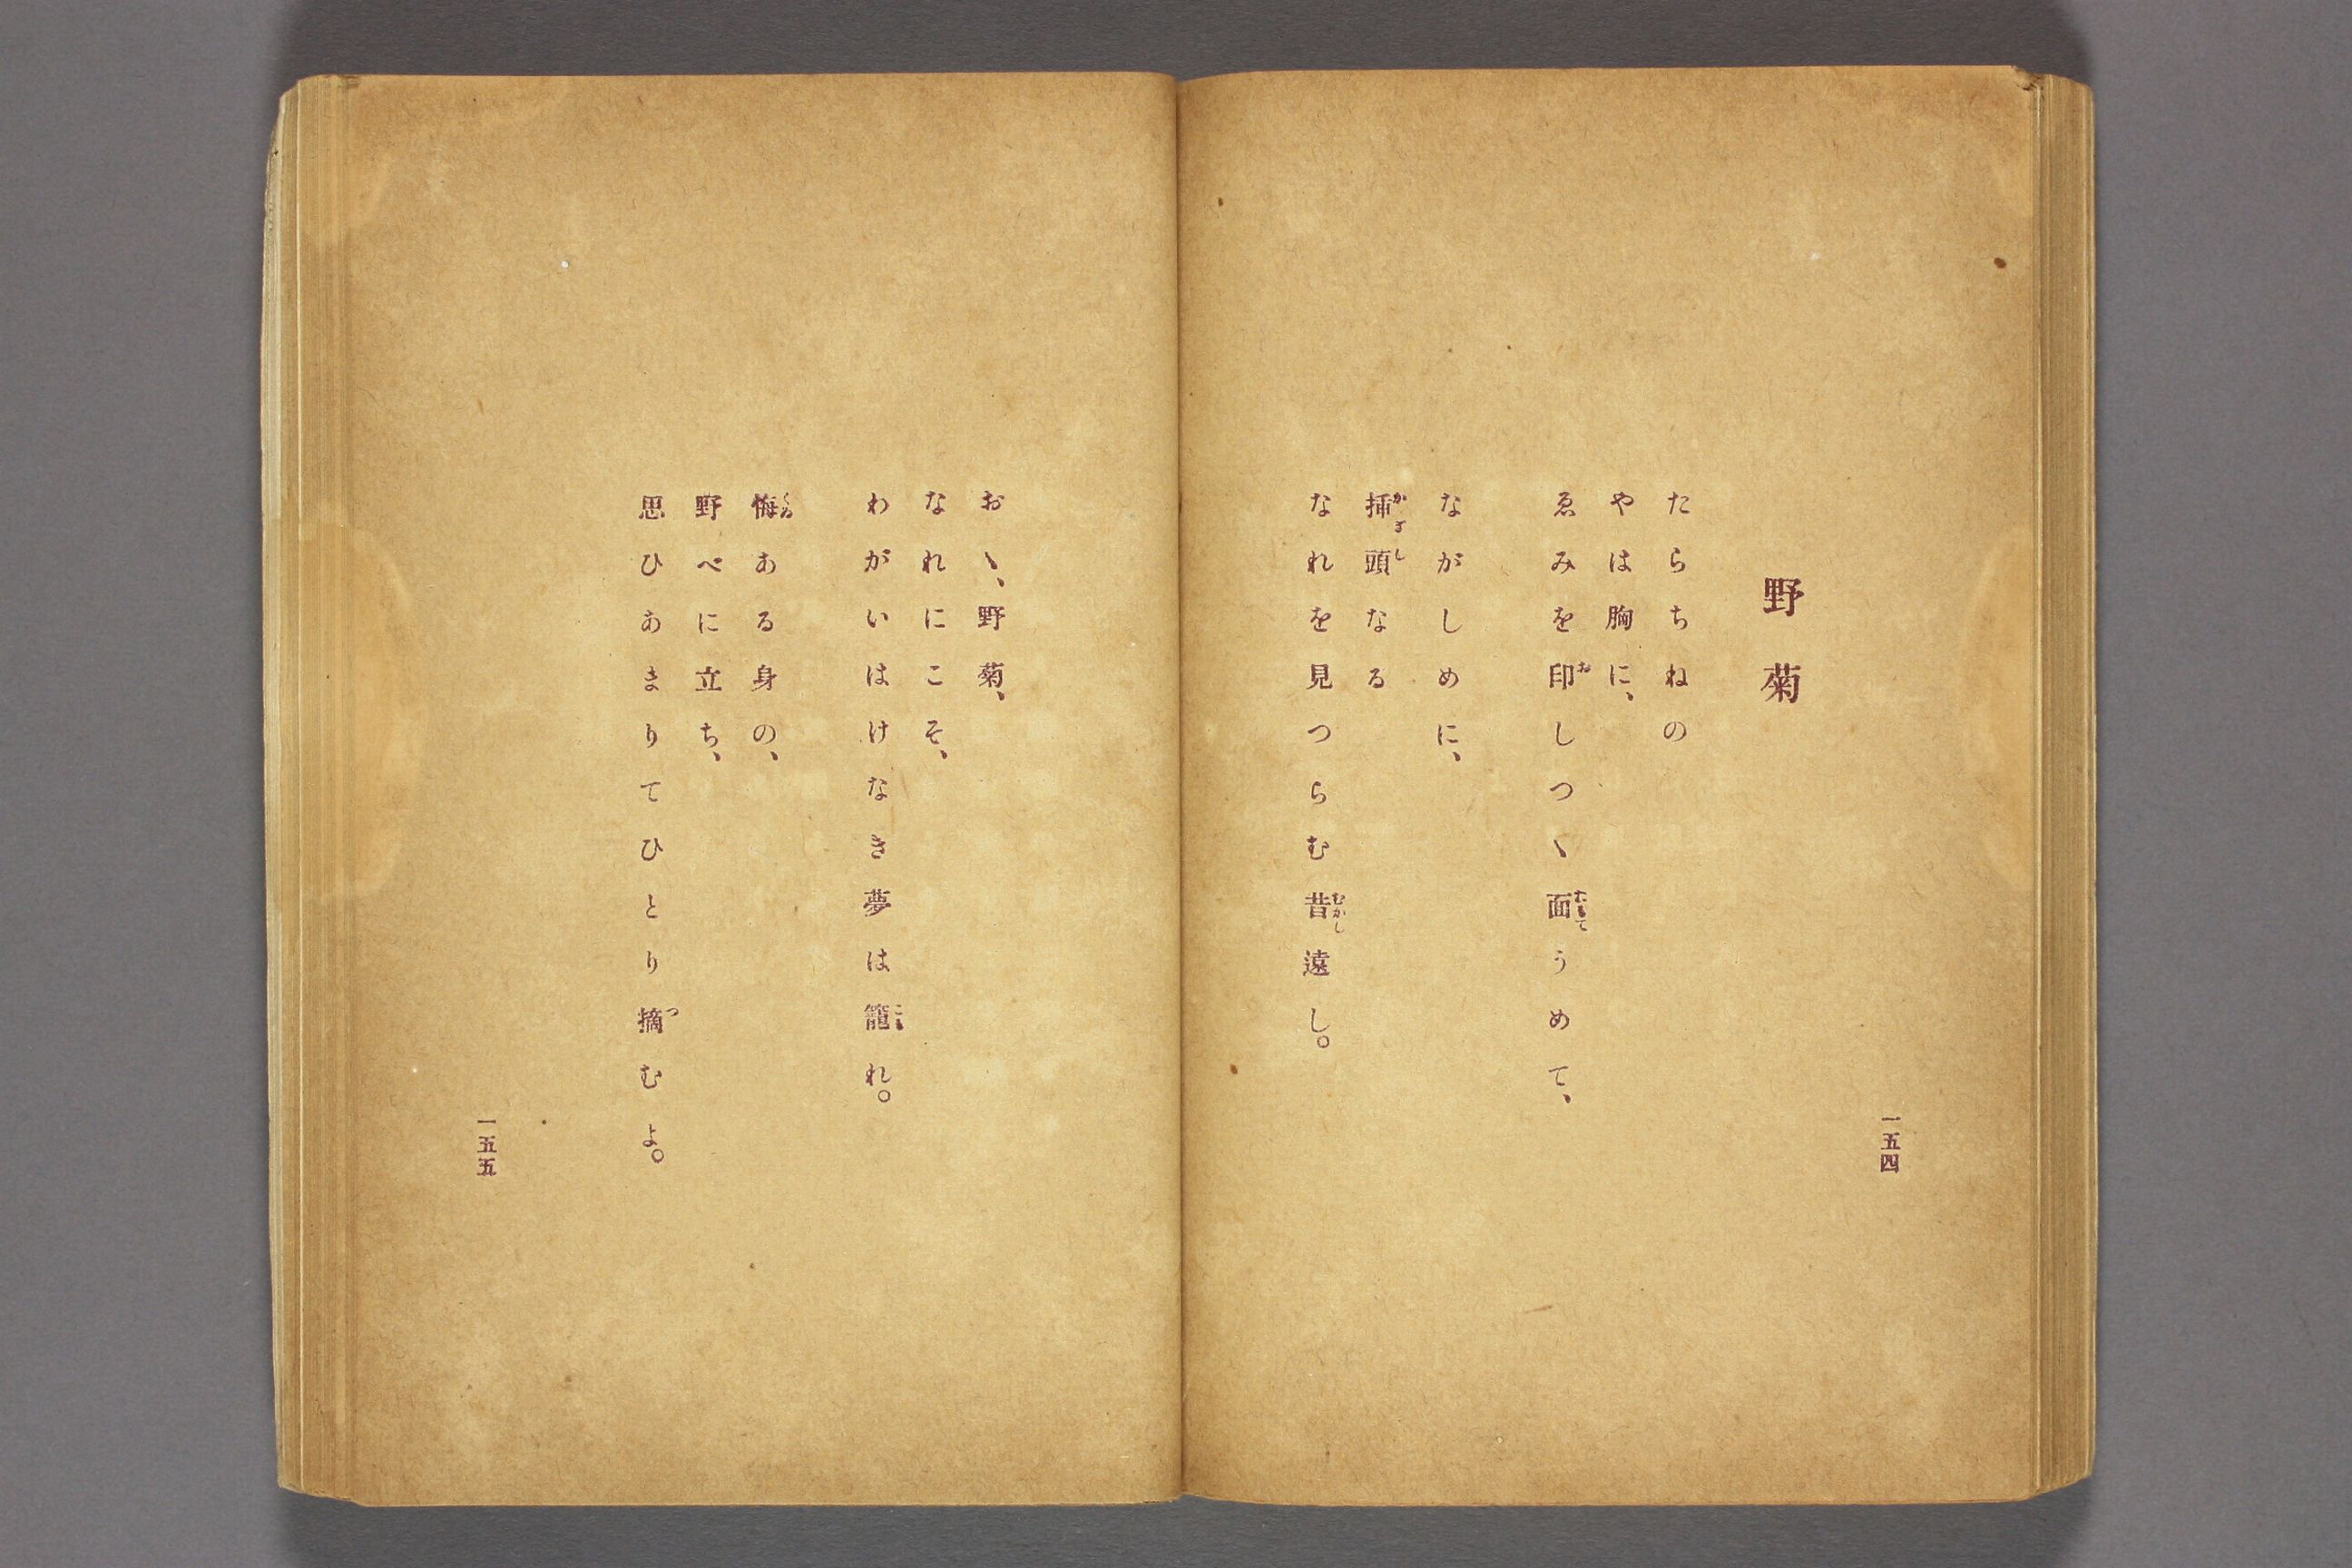 一五四
野菊
たらちねの
やは胸に、
ゑみを印しつゝ面うめて、
ながしめに、
挿頭なる
なれを見つらむ昔遠し。
おゝ、野菊、
なれにこそ、
わがいはけなき夢は籠れ。
悔ある身の、
野べに立ち、
思ひあまりてひとり摘むよ。
一五五